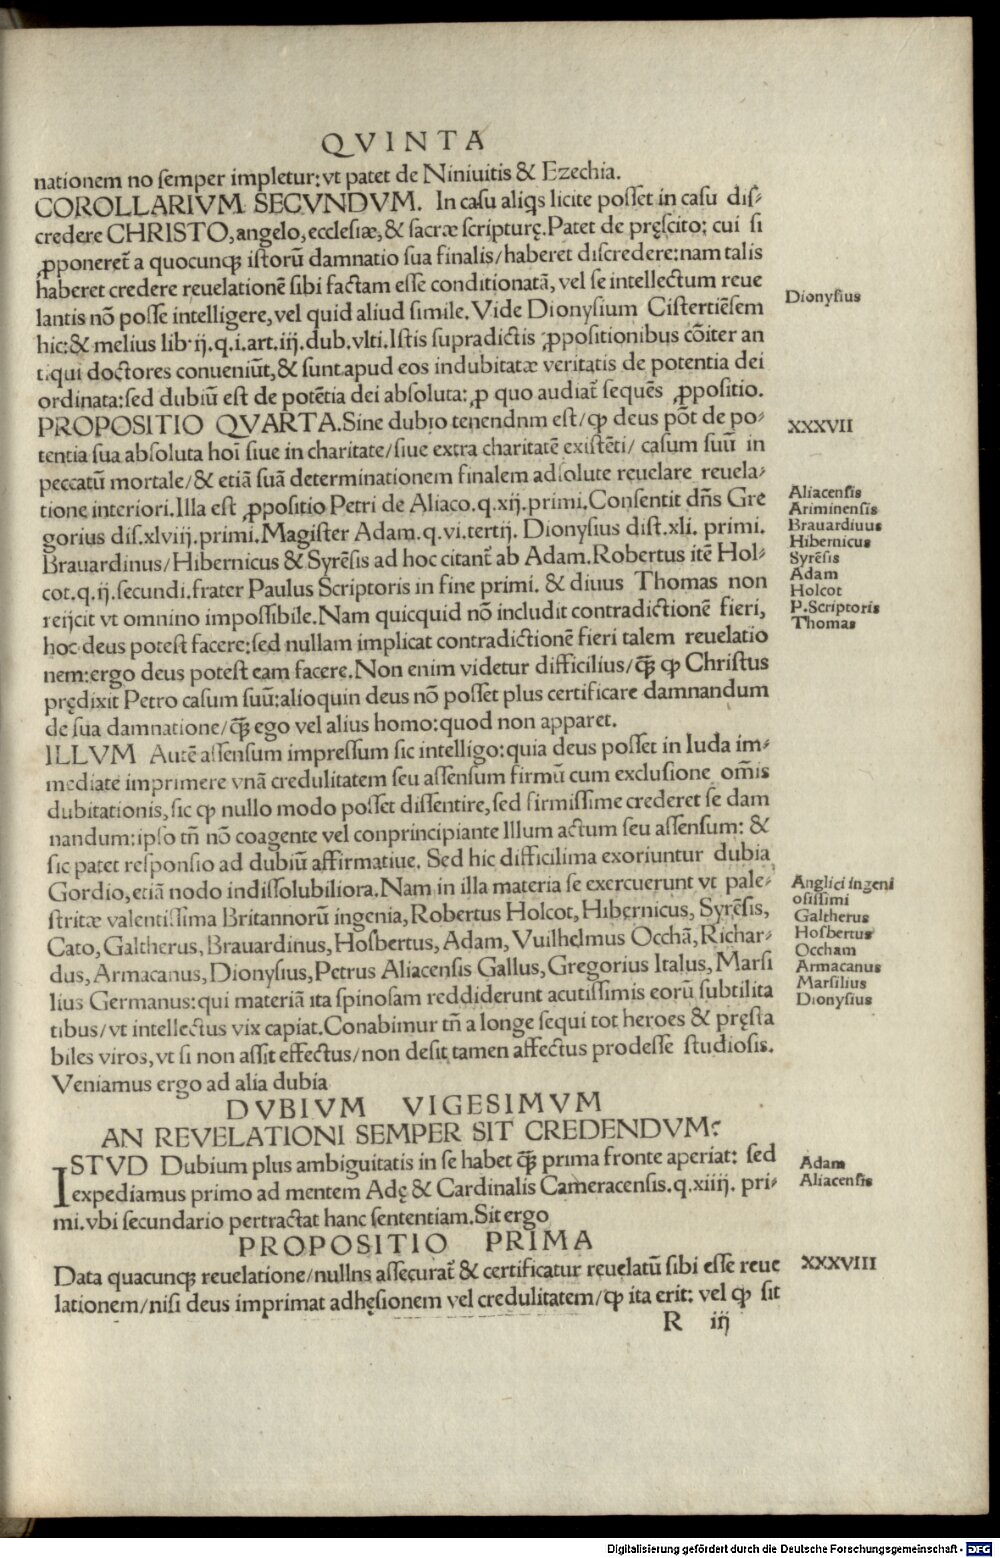 QVINTA
nationem no semper impletur: vt patet de Niniuitis & Ezechia.
COROLLARIVM SECVNDVM. In casu aliqs licite posset in casu dis-
credere CHRISTO, angelo, ecclesiæ, & sacræ scripturę. Patet de pręscito: cui si
ꝓponeret̃ a quocunqꝫ istorũ damnatio sua finalis/haberet discredere: nam talis
haberet credere reuelationẽ sibi factam esse conditionatã, vel se intellectum reue
lantis nõ posse intelligere, vel quid aliud simile. Vide Dionysium Cisterciẽsem
Dionysius
hic: & melius lib. ij. q. i. art. iij. dub. vlti. Istis supradictis ꝓpositionibus cõiter an
tiqui doctores conueniũt, & sunt apud eos indubitatæ veritatis de potentia dei
ordinata: sed dubiũ est de potẽtia dei absoluta: ꝓ quo audiat̃ sequẽs ꝓpositio.
PROPOSITIO QVARTA. Sine dubio tenendnm est/ꝙ deus põt de po-
XXXVII
tentia sua absoluta hoĩ siue in charitate/siue extra charitatẽ existẽti/ casum suũ in
peccatũ mortale/& etiã suã determinationem finalem adsolute reuelare reuela-
tione interiori. Illa est ꝓpositio Petri de Aliaco. q. xij. primi. Consentit dñs Gre
Aliacensis
Ariminensis
gorius dis. xlviij. primi. Magister Adam. q. vi. tertij. Dionysius dist. xli. primi.
Brauardiuus
Hibernicus
Brauardinus/Hibernicus & Syrẽsis ad hoc citant̃ ab Adam. Robertus itẽ Hol-
Syrẽsis
Adam
cot. q. ij. secundi. frater Paulus Scriptoris in fine primi. & diuus Thomas non
Holcot
P. Scriptoris
reijcit vt omnino impossibile. Nam quicquid nõ includit contradictionẽ fieri,
Thomas
hoc deus potest facere: sed nullam implicat contradictionẽ fieri talem reuelatio
nem: ergo deus potest eam facere. Non enim videtur difficilius/q̃ꝫ ꝙ Christus
prędixit Petro casum suũ: alioquin deus nõ posset plus certificare damnandum
de sua damnatione/q̃ꝫ ego vel alius homo: quod non apparet.
ILLVM Autẽ assensum impressum sic intelligo: quia deus posset in Iuda im-
mediate imprimere vnã credulitatem seu assensum firmũ cum exclusione om̃is
dubitationis, sic ꝙ nullo modo posset dissentire, sed firmissime crederet se dam
nandum: ipso tñ nõ coagente vel conprincipiante Illum actum seu assensum: &
sic patet responsio ad dubiũ affirmatiue. Sed hic difficilima exoriuntur dubia
Gordio, etiã nodo indissolubiliora. Nam in illa materia se exercuerunt vt pale-
Anglici ingeni
osissimi
stritæ valentissima Britannorũ ingenia, Robertus Holcot, Hibernicus, Syrẽsis,
Galtherus
Cato, Galtherus, Brauardinus, Hosbertus, Adam, Vuilhelmus Occhã, Richar-
Hosbertus
Occham
dus, Armacanus, Dionysius, Petrus Aliacensis Gallus, Gregorius Italus, Marsi
Armacanus
Marsilius
lius Germanus: qui materiã ita spinosam reddiderunt acutissimis eorũ subtilita
Dionysius
tibus/vt intellectus vix capiat. Conabimur tñ a longe sequi tot heroes & pręsta
biles viros, vt si non assit effectus/non desit tamen affectus prodesse studiosis.
Veniamus ergo ad alia dubia
DVBIVM VIGESIMVM
AN REVELATIONI SEMPER SIT CREDENDVM?
ISTVD Dubium plus ambiguitatis in se habet q̃ꝫ prima fronte aperiat: sed
Adam
expediamus primo ad mentem Adę & Cardinalis Cameracensis. q. xiiij. pri-
Aliacensis
mi. vbi secundario pertractat hanc sententiam. Sit ergo
PROPOSITIO PRIMA
Data quacunqꝫ reuelatione/nullns assecurat̃ & certificatur reuelatũ sibi esse reue
XXXVIII
lationem/nisi deus imprimat adhęsionem vel credulitatem/ꝙ ita erit: vel ꝙ sit
R iij
Digitalisierung gefördert durch die Deutsche Forschungsgemeinschaft - DFG